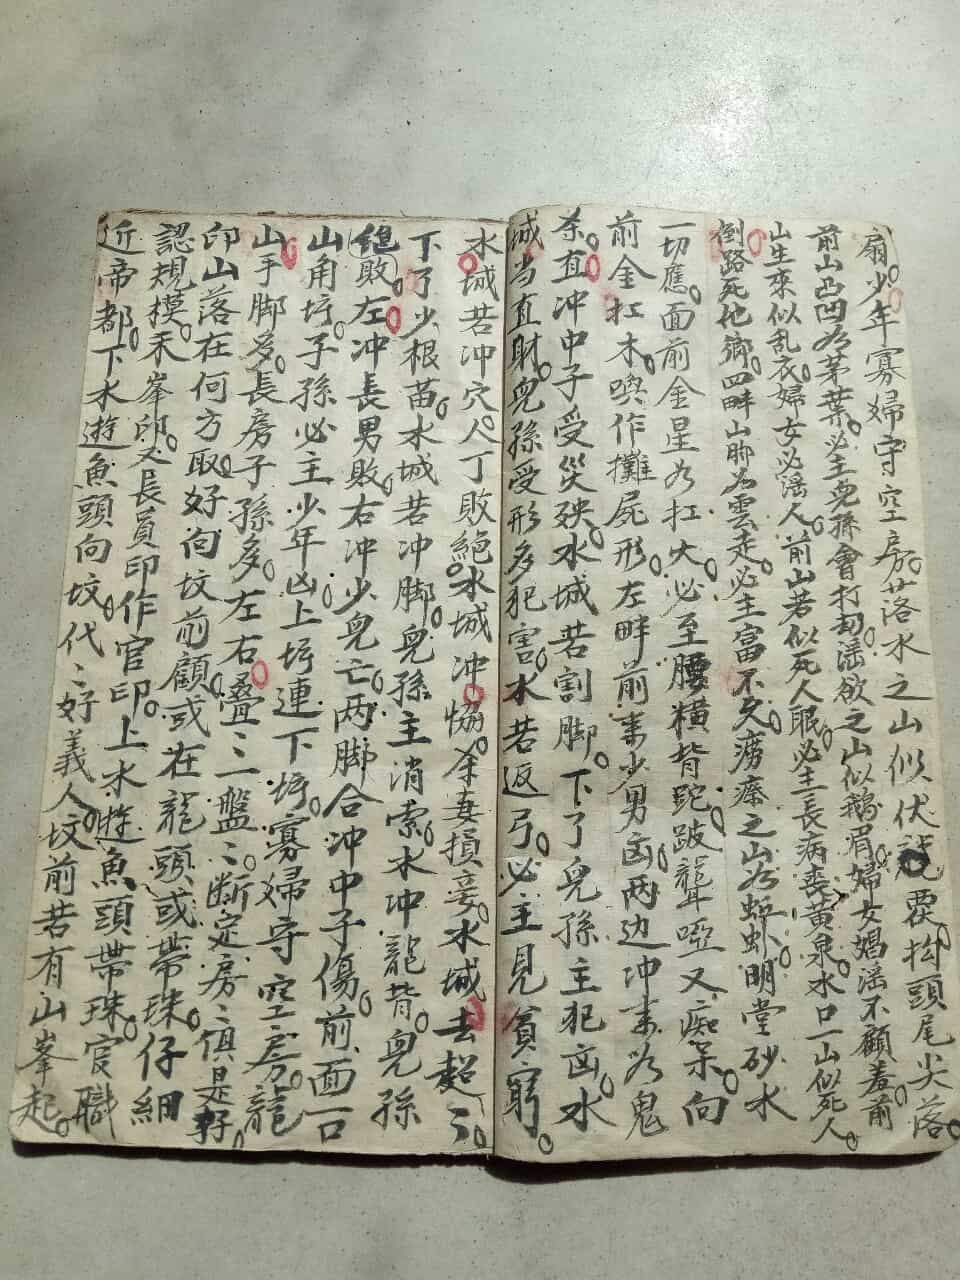 扇少年寡婦守空房落水之山似伏 要拘頭尾尖落
前山凸凹为茅葉必主兒孫會打劫滛欲之山似鵝眉婦女娼滛不顧羞前
山生來似乱衣婦女必滛人前山若似死人眠必主長病喪黄泉水口一山似死人
倒路死他鄉四畔山脚为雲走必主富不久痨瘵之山为蚯蚓明堂砂水
一切應面前金星为扛大必至腰横背跎跛聾啞又痴呆向
前金扛木喚作攤屍形左畔前来少男凶两边冲来为鬼
杀直冲中子受災殃水城若割脚下了兒孫主犯凶水
城当直財兒孫受形多犯害水若返弓必主見貧窮
水城若冲穴人丁敗絕水城冲 杀妻損妾水城去超〻
下了少根苗水城若冲脚兒孫主消索水冲龍背兒孫
絕敗左冲長男敗右冲少兒亡两脚合冲中子傷前面一
山角圬子孫必主少年凶上圬連下圬寡婦守空房龍
山手脚多長房子孫多左右叠〻三盤〻断定房〻俱是好
印山落在何方取好向坟前顧或在龍頭或帶珠仔細
認規模禾峯印又長員印作官印上水遊魚頭帶珠官職
近帝都下水遊魚頭向坟代〻好義人坟前若有山峯起